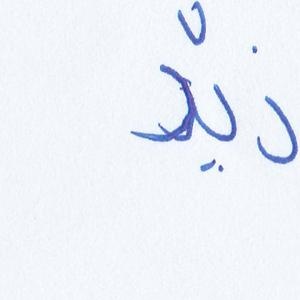 زيد